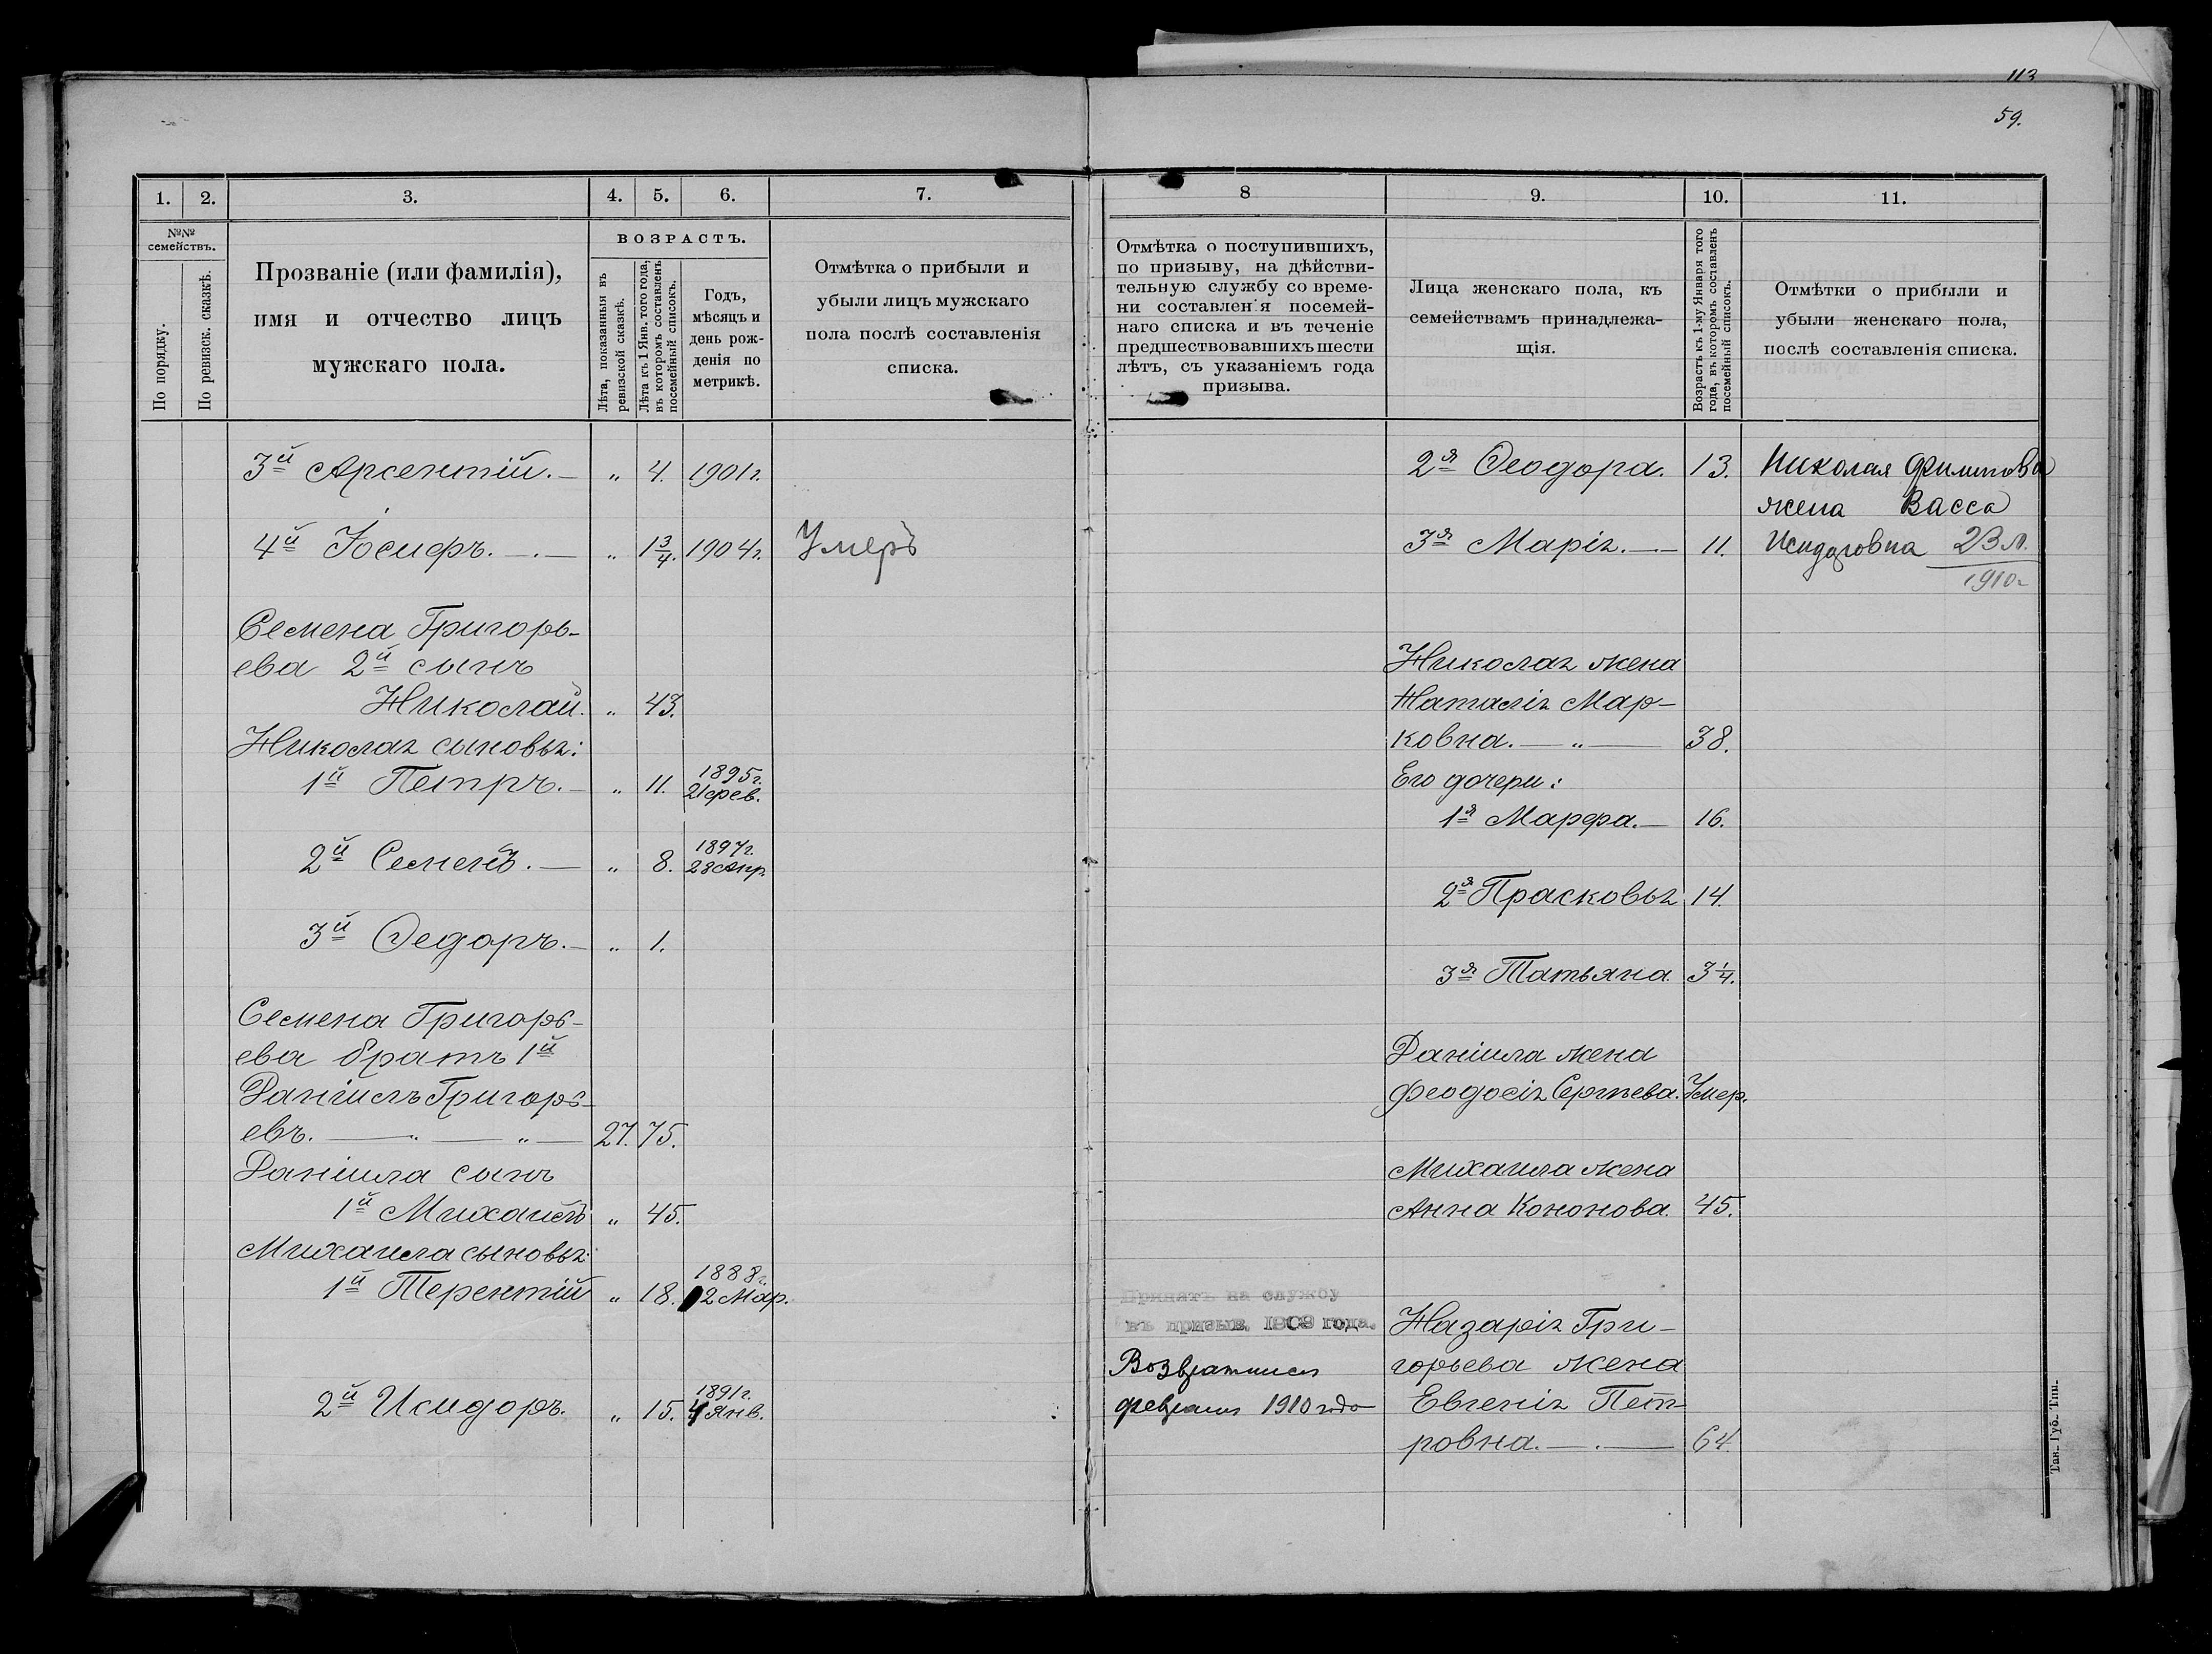 113
59.
1.
2.
3.
4.
5.
6.
7.
№№
семействъ.
По порядку.
По ревизск. сказкѣ.
Прозваніе (или фамилія),
имя и отчество лицъ
мужскаго пола.
ВОЗРАСТЪ.
Лѣта, показанныя въ
ревизской сказкѣ.
Лѣта къ 1 Янв. того года,
въ которомъ составленъ
посемейный списокъ.
Годъ,
мѣсяцъ и
день рож-
денія по
метрикѣ.
Отмѣтка о прибыли и
убыли лицъ мужскаго
пола послѣ составленія
списка.
3й Арсентій. — „ 4. 1901г.
4й Іосифъ. — „ 1 3/4. 1904г. Умеръ
Семена Григорь-
ева 2й сынъ
Николай. „ 43.
Николая сыновья:
1й Петръ. — „ 11. 1895г.
21 фев.
2й Семенъ. — „ 8. 1897г.
28 Апр.
3й Ѳедоръ. — „ 1.
Семена Григорь-
ева братъ 1й
Даніилъ Григорь-
евъ. — „ — „ — 27. 75.
Даніила сынъ
1й Михаилъ „ 45.
Михаила сыновья:
1й Терентій „ 18. 1888г.
2 Мар.
2й Исидоръ. „ 15. 1891г.
4 Янв.
8
9.
10.
11.
Отмѣтка о поступившихъ,
по призыву, на дѣйстви-
тельную службу со време-
ни составленія посемей-
наго списка и въ теченіе
предшествовавшихъ шести
лѣтъ, съ указаніемъ года
призыва.
Лица женскаго пола, къ
семействамъ принадлежа-
щія.
Возрастъ къ 1-му Января того
года, въ которомъ составленъ
посемейный списокъ.
Отмѣтки о прибыли и
убыли женскаго пола,
послѣ составленія списка.
2я Ѳеодора. 13. Николая Филипова
жена Васса
3я Марія. — 11. Исидоровна 23 л.
1910г
Николая жена
Наталія Мар-
ковна. — „ — 38.
Его дочери:
1я Марфа. — 16.
2я Прасковья 14.
3я Татьяна. 3 1/4.
Даніила жена
Феодосія Сергѣева. Умер.
Михаила жена
Анна Кононова. 45.
Принятъ на службу
въ призыв. 1909 года.
Возвратился
февраля 1910 года
Назарія Гри-
горьева жена
Евгенія Пет-
ровна. — . — 64.
Тав. Губ. Тип.